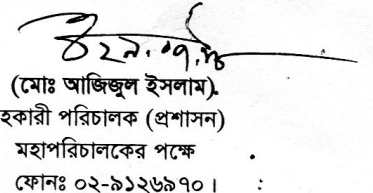 (মোঃ আজিজুল ইসলাম)
হকারী পরিচালক (প্রশাসন)
মহাপরিচালকের পক্ষে
ফোনঃ ০২-৯১২৬৯৭০।